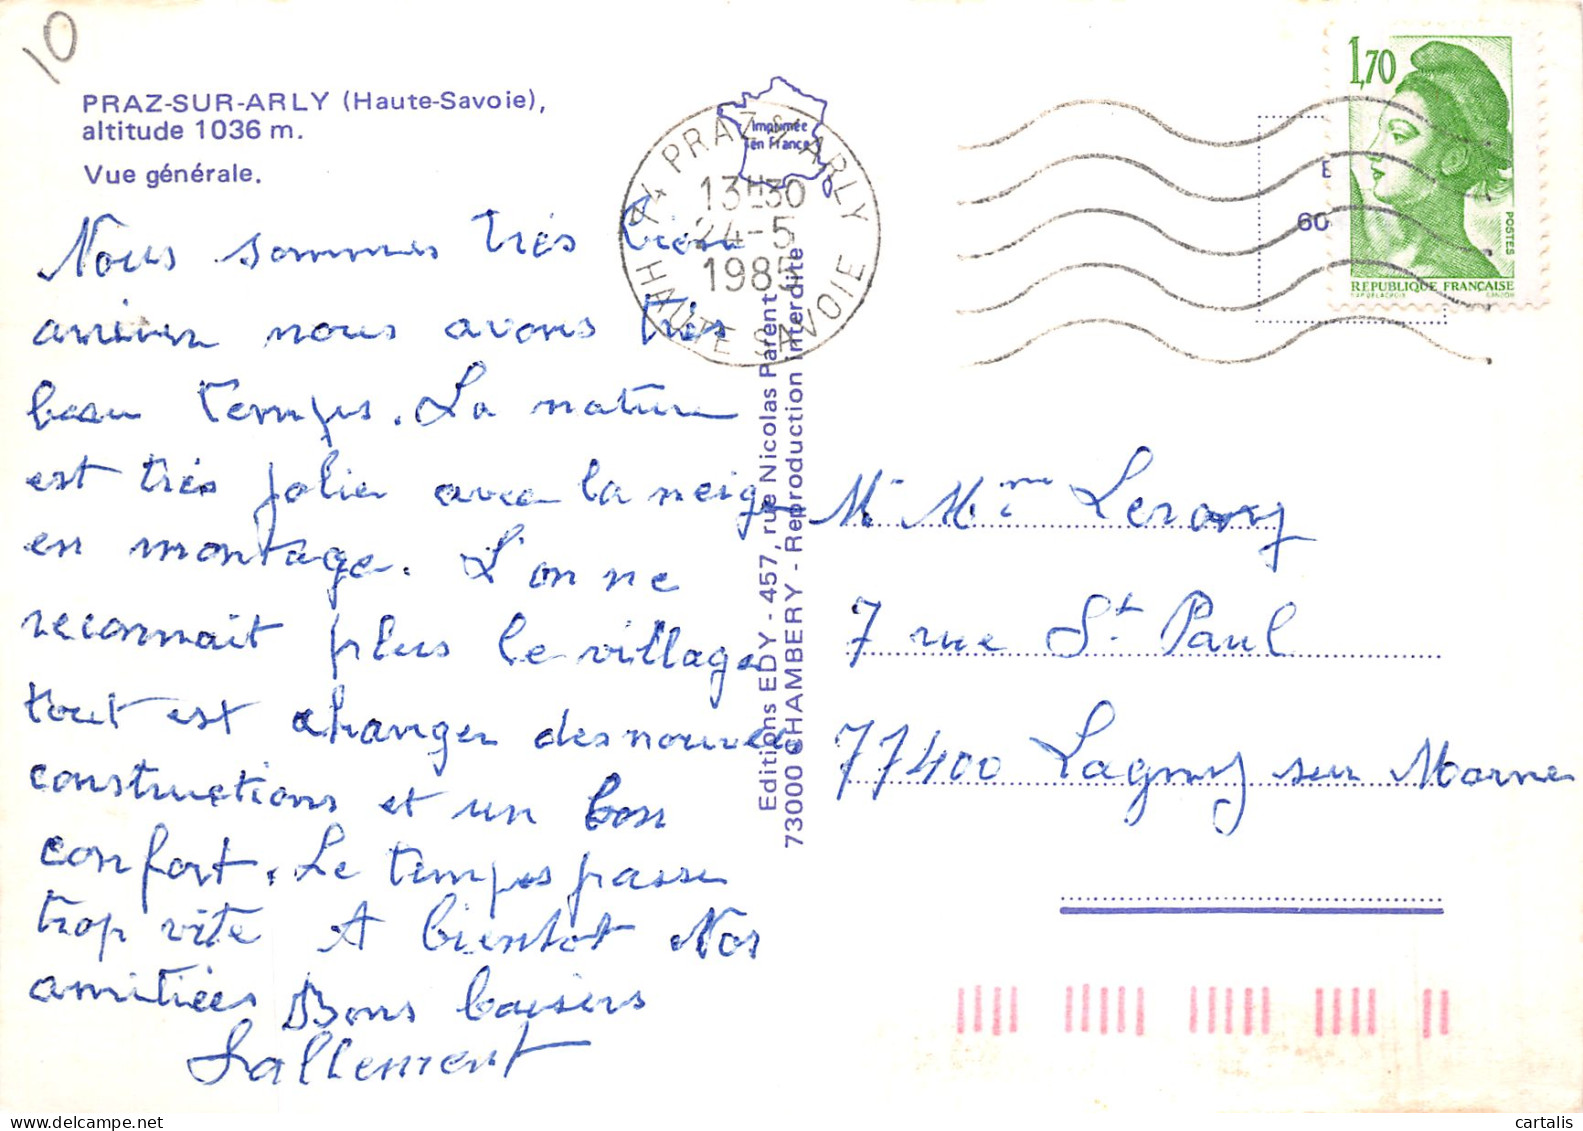 10
PRAZ-SUR-ARLY (Haute-Savoie),
altitude 1036 m.
Vue générale.
Nous sommes très bien
arriver nous avons très
beau temps. La nature
est très jolie avec la neige
en montage. L'on ne
reconnait plus le village
tout est changer des nouvelle
constructions et un bon
confort. Le temps passe
trop vite A bientot Nos
amitiées Bons baisers
Lallement
Imprimée
en France
74 PRAZ S/ ARLY
13H30
24-5
1985
HAUTE SAVOIE
Editions EDY - 457, rue Nicolas Parent
73000 CHAMBERY - Reproduction interdite
1,70
POSTES
REPUBLIQUE FRANÇAISE
GANDON
E
60
Mr Mme Leroy
7 rue St Paul
77400 Lagny sur Marne
cartalis